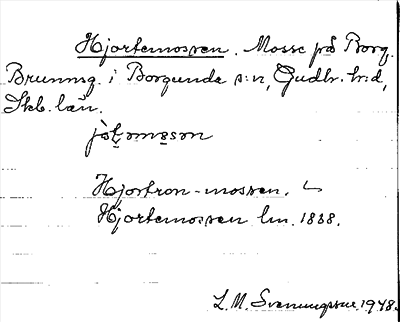 Hjortemossen. Mosse på Borg,
Brunnsg. i Borgunda s:n, Gudh. h:d,
Skb. län.
Hjortron-mossen.
Hjortemossen lm. 1838.
L. M. Svenungsson 1948.